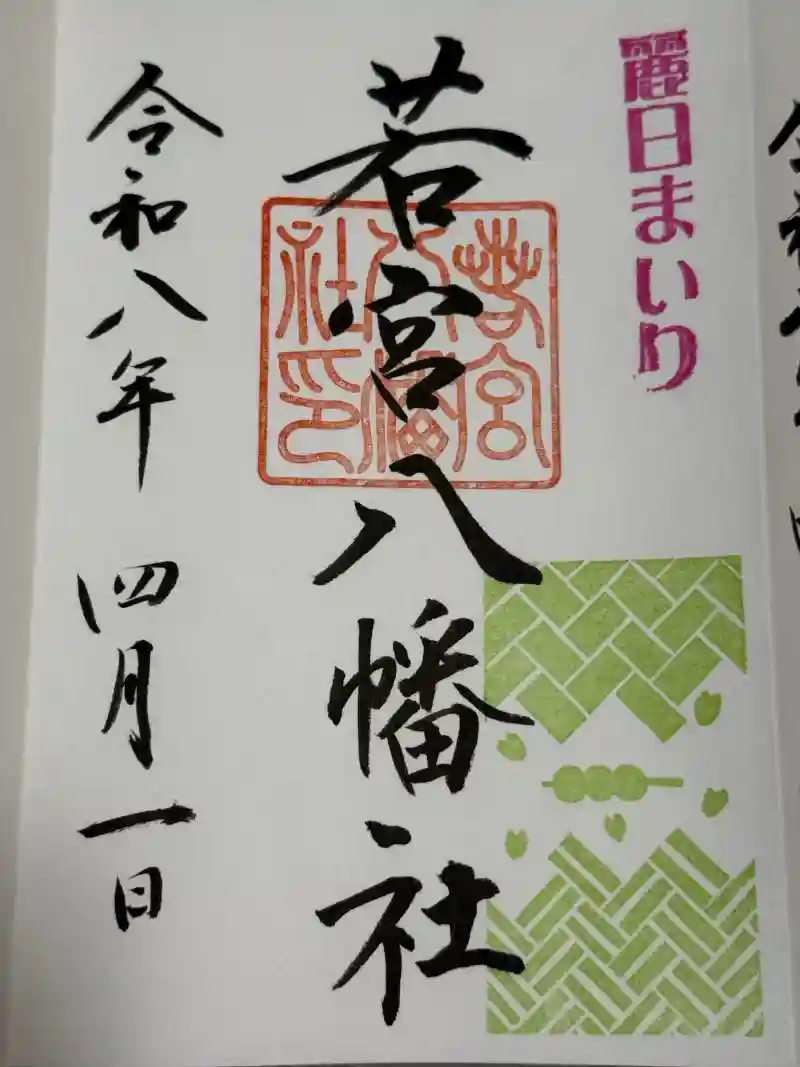 麗日まいり
若宮八幡社
若宮
八幡
社印
令和八年 四月一日